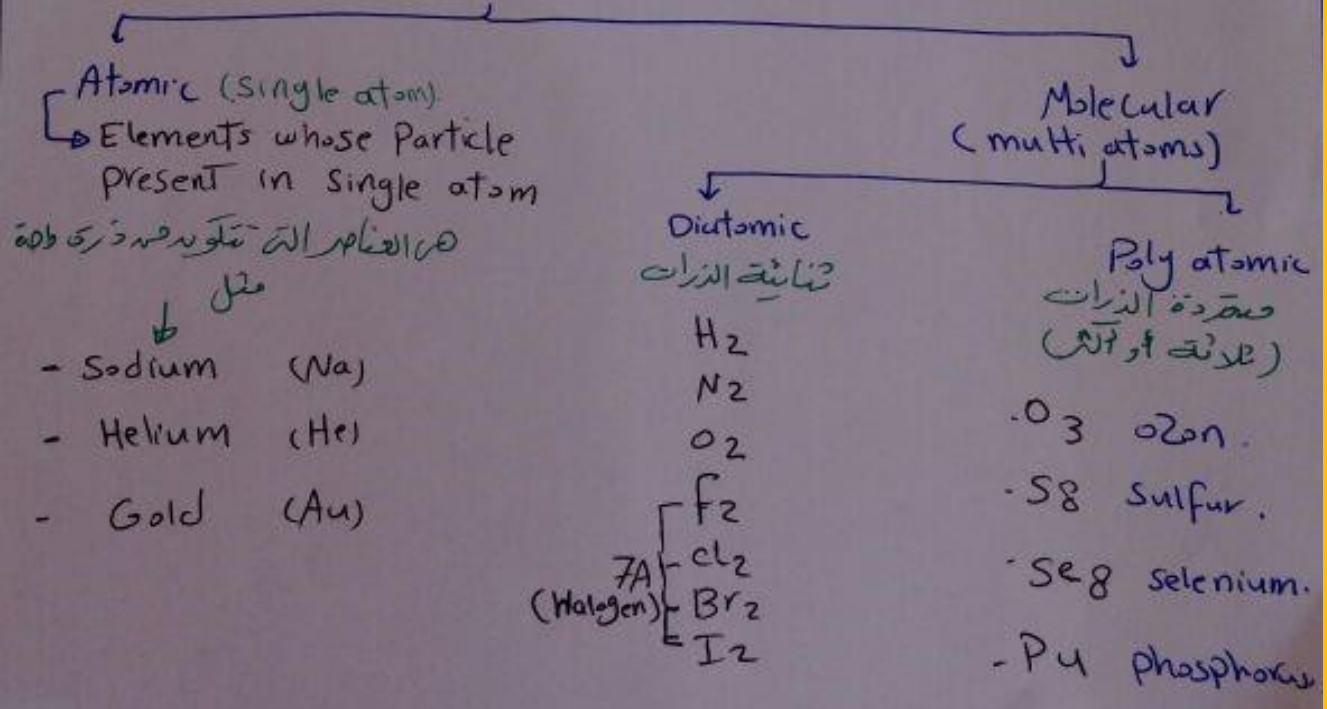 Atomic (Single atom).
Elements whose Particle
present in Single atom
هى العناصر التى تتكون من ذرة واحدة
مثل
- Sodium (Na)
- Helium (He)
- Gold (Au)
Molecular
(multi atoms)
Diatomic
ثنائية الذرات
H2
N2
O2
F2
Cl2
Br2
I2
7A
(Halogen)
Poly atomic
متعددة الذرات
(ثلاثة أو أكثر)
.O3 ozon.
.S8 Sulfur.
.Se8 selenium.
-P4 phosphorus